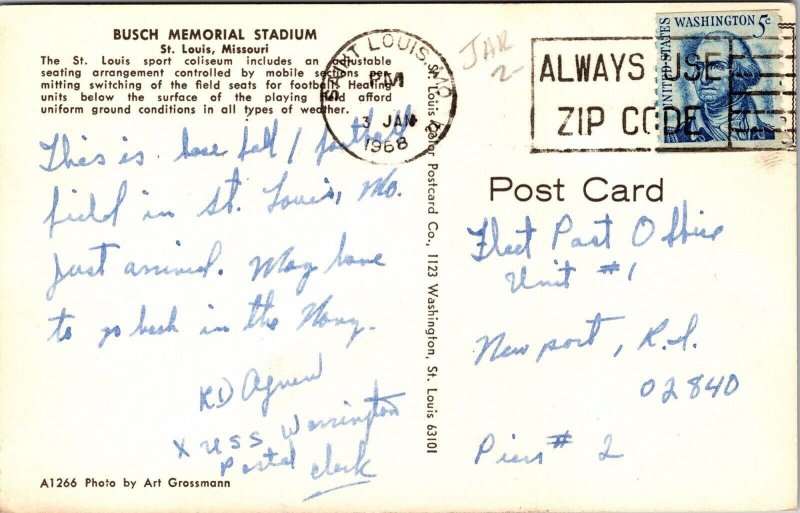 BUSCH MEMORIAL STADIUM
St. Louis, Missouri
The St. Louis sport coliseum includes an adjustable
seating arrangement controlled by mobile sections permitting
mitting switching of the field seats for football. Heating
units below the surface of the playing field afford
uniform ground conditions in all types of weather.
This is base ball / football
field in St. Louis, Mo.
Just arrived. May have
to go back in the Navy.
KD Agnew
X USS Warrington
Postal clerk
A1266 Photo by Art Grossmann
St. Louis Color Postcard Co., 1123 Washington, St. Louis 63101
SAINT LOUIS, MO.
PM
3 JAN
1968
JAR
2-
ALWAYS USE
ZIP CODE
UNITED STATES
WASHINGTON 5c
Post Card
Fleet Post Office
Unit #1
Newport, R.I.
02840
Piers # 2